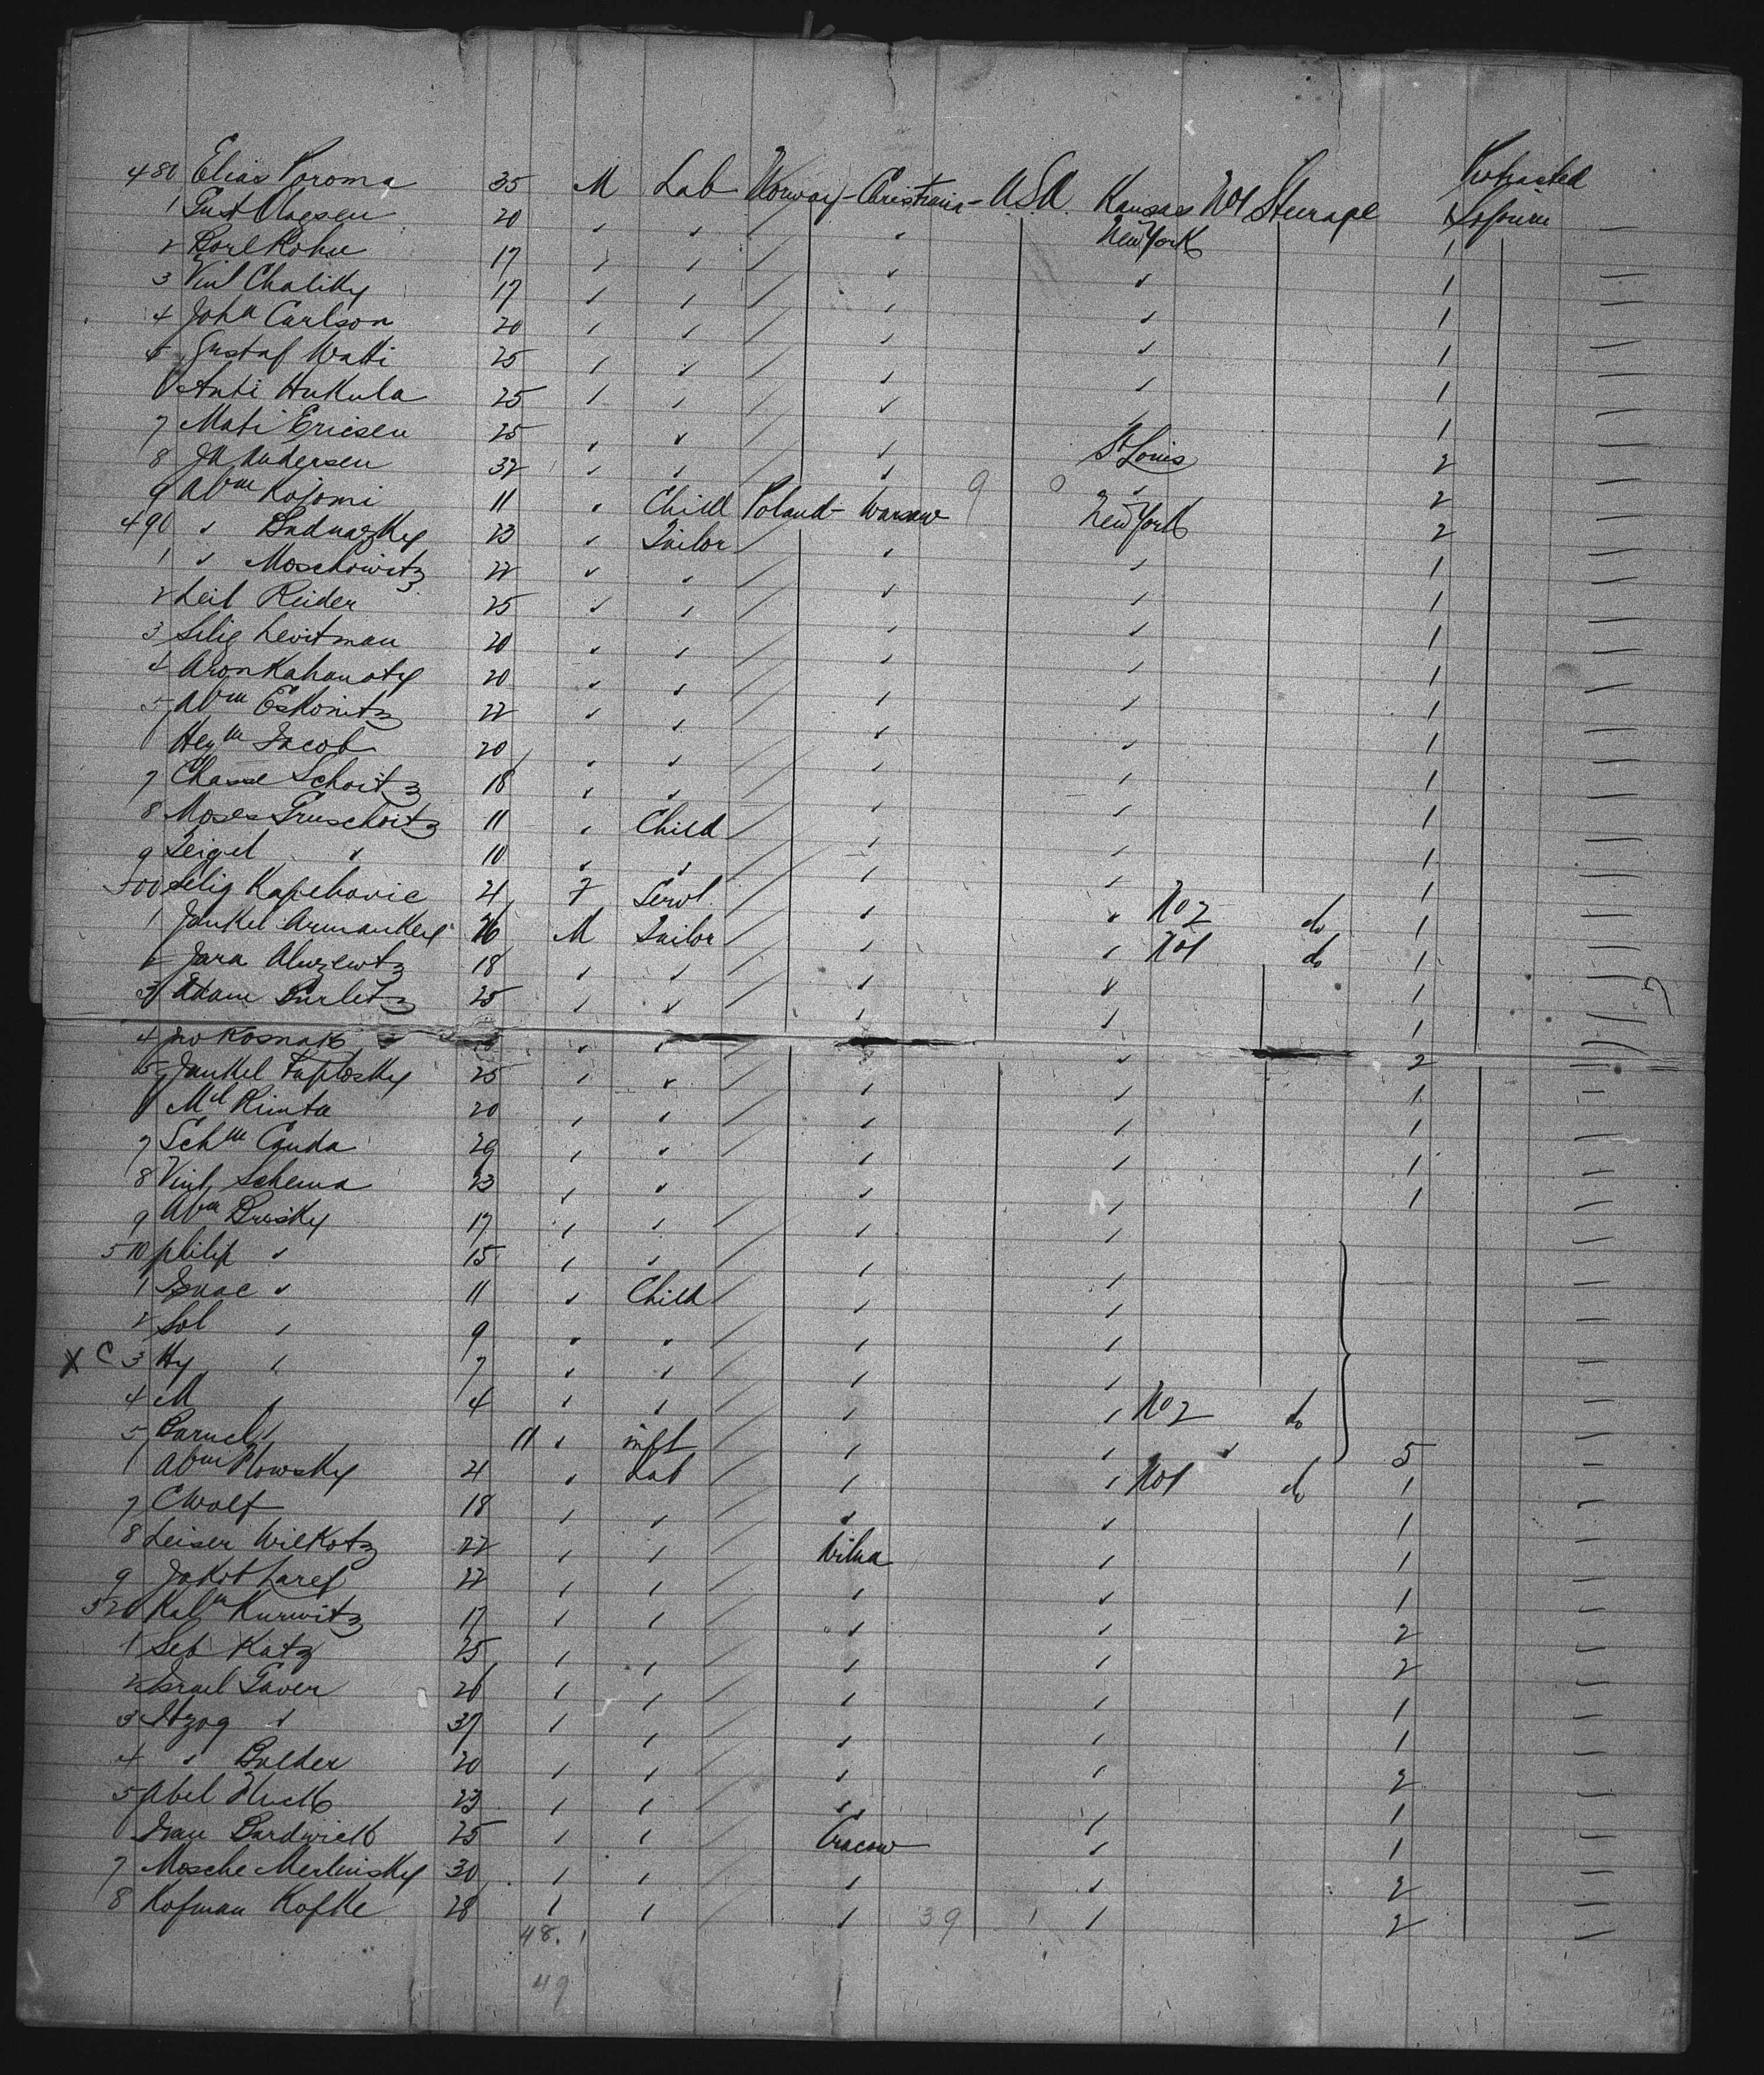 480 Elias Poroma 35 M Lab Norway - Christiania - U.S.A. Kansas No 1 Steerage 1 Protracted Sojourn —
1 Gust Olaesen 20 " " / " New York 1 —
2 Borl Kohn 17 " " / " " 1 —
3 Vinl Chaliky 17 " " / " " 1 —
4 John Carlson 20 " " / " " 1 —
5 Gustaf Watti 25 " " / " " 1 —
6 Anti Hukula 25 " " / " " 1 —
7 Mati Ericsen 25 " " / " St Louis 2 —
8 Jn Andersen 32 " " / " " 2 —
9 Abm Kojomi 11 " Child Poland - Warsaw 9 New York 2 —
490 " Badnazky 23 " Tailor / " " 1 —
1 " Moschowitz 22 " " / " " 1 —
2 Leib Reider 25 " " / " " 1 —
3 Selig Levitman 20 " " / " " 1 —
4 Aron Kahanoty 20 " " / " " 1 —
5 Abm Eskonitz 22 " " / " " 1 —
6 Heym Jacob 20 " " / " " 1 —
7 Chasse Schoitz 18 " " / " " 1 —
8 Moses Gruschoitz 11 " Child / " " 1 —
9 Zeigel " 10 " " / " " 1 —
500 Selig Kapebovic 21 F Servt / " " No 2 do 1 —
1 Jankel Armankey 26 M Tailor / " " No 1 do 1 —
2 Jara Alwzewtz 18 " " / " " 1 —
3 Adam Burletz 25 " " / " " 1 —
4 Jno Kosnak " " " " 2 —
5 Jankel Taplosky 25 " " / " " 1 —
6 Ml Rimta 20 " " / " " 1 —
7 Schm Canda 29 " " / " " 1 —
8 Vint Schema 23 " " / " " 1 —
9 Abm Bresky 17 " " / " " —
510 Philip " 15 " " / " " —
1 Isaac " 11 " Child / " " —
2 Sol " 9 " " / " " —
X C 3 Hy " 7 " " / " " —
4 M " 4 " " / " " No 2 do —
5 Baruch " 11 " inft / " " " 5 —
6 Abm Plowsky 21 " Lab / " " No 1 do 1 —
7 C Wolf 18 " " / " " 1 —
8 Leiser Wilkotz 22 " " / Wilna " 1 —
9 Jakob Laref 22 " " / " " 1 —
520 Kalm Kurwitz 17 " " / " " 2 —
1 Seb Katz 25 " " / " " 2 —
2 Israel Taver 26 " " / " " 1 —
3 Itzog " 37 " " / " " 1 —
4 " Balder 20 " " / " " 2 —
5 Abel Huck 23 " " / " " 1 —
6 Ivan Bardwick 25 " " / Cracow " 1 —
7 Mosche Merlinsky 30 " " / " " 2 —
8 Kofman Kofke 28 " " / " 39 1 " 2 —
48. 1
49